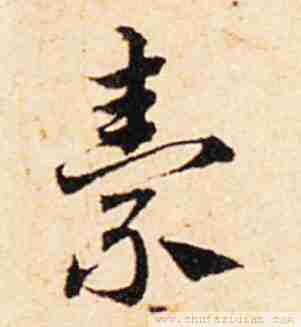 素
www.shufazidian.com